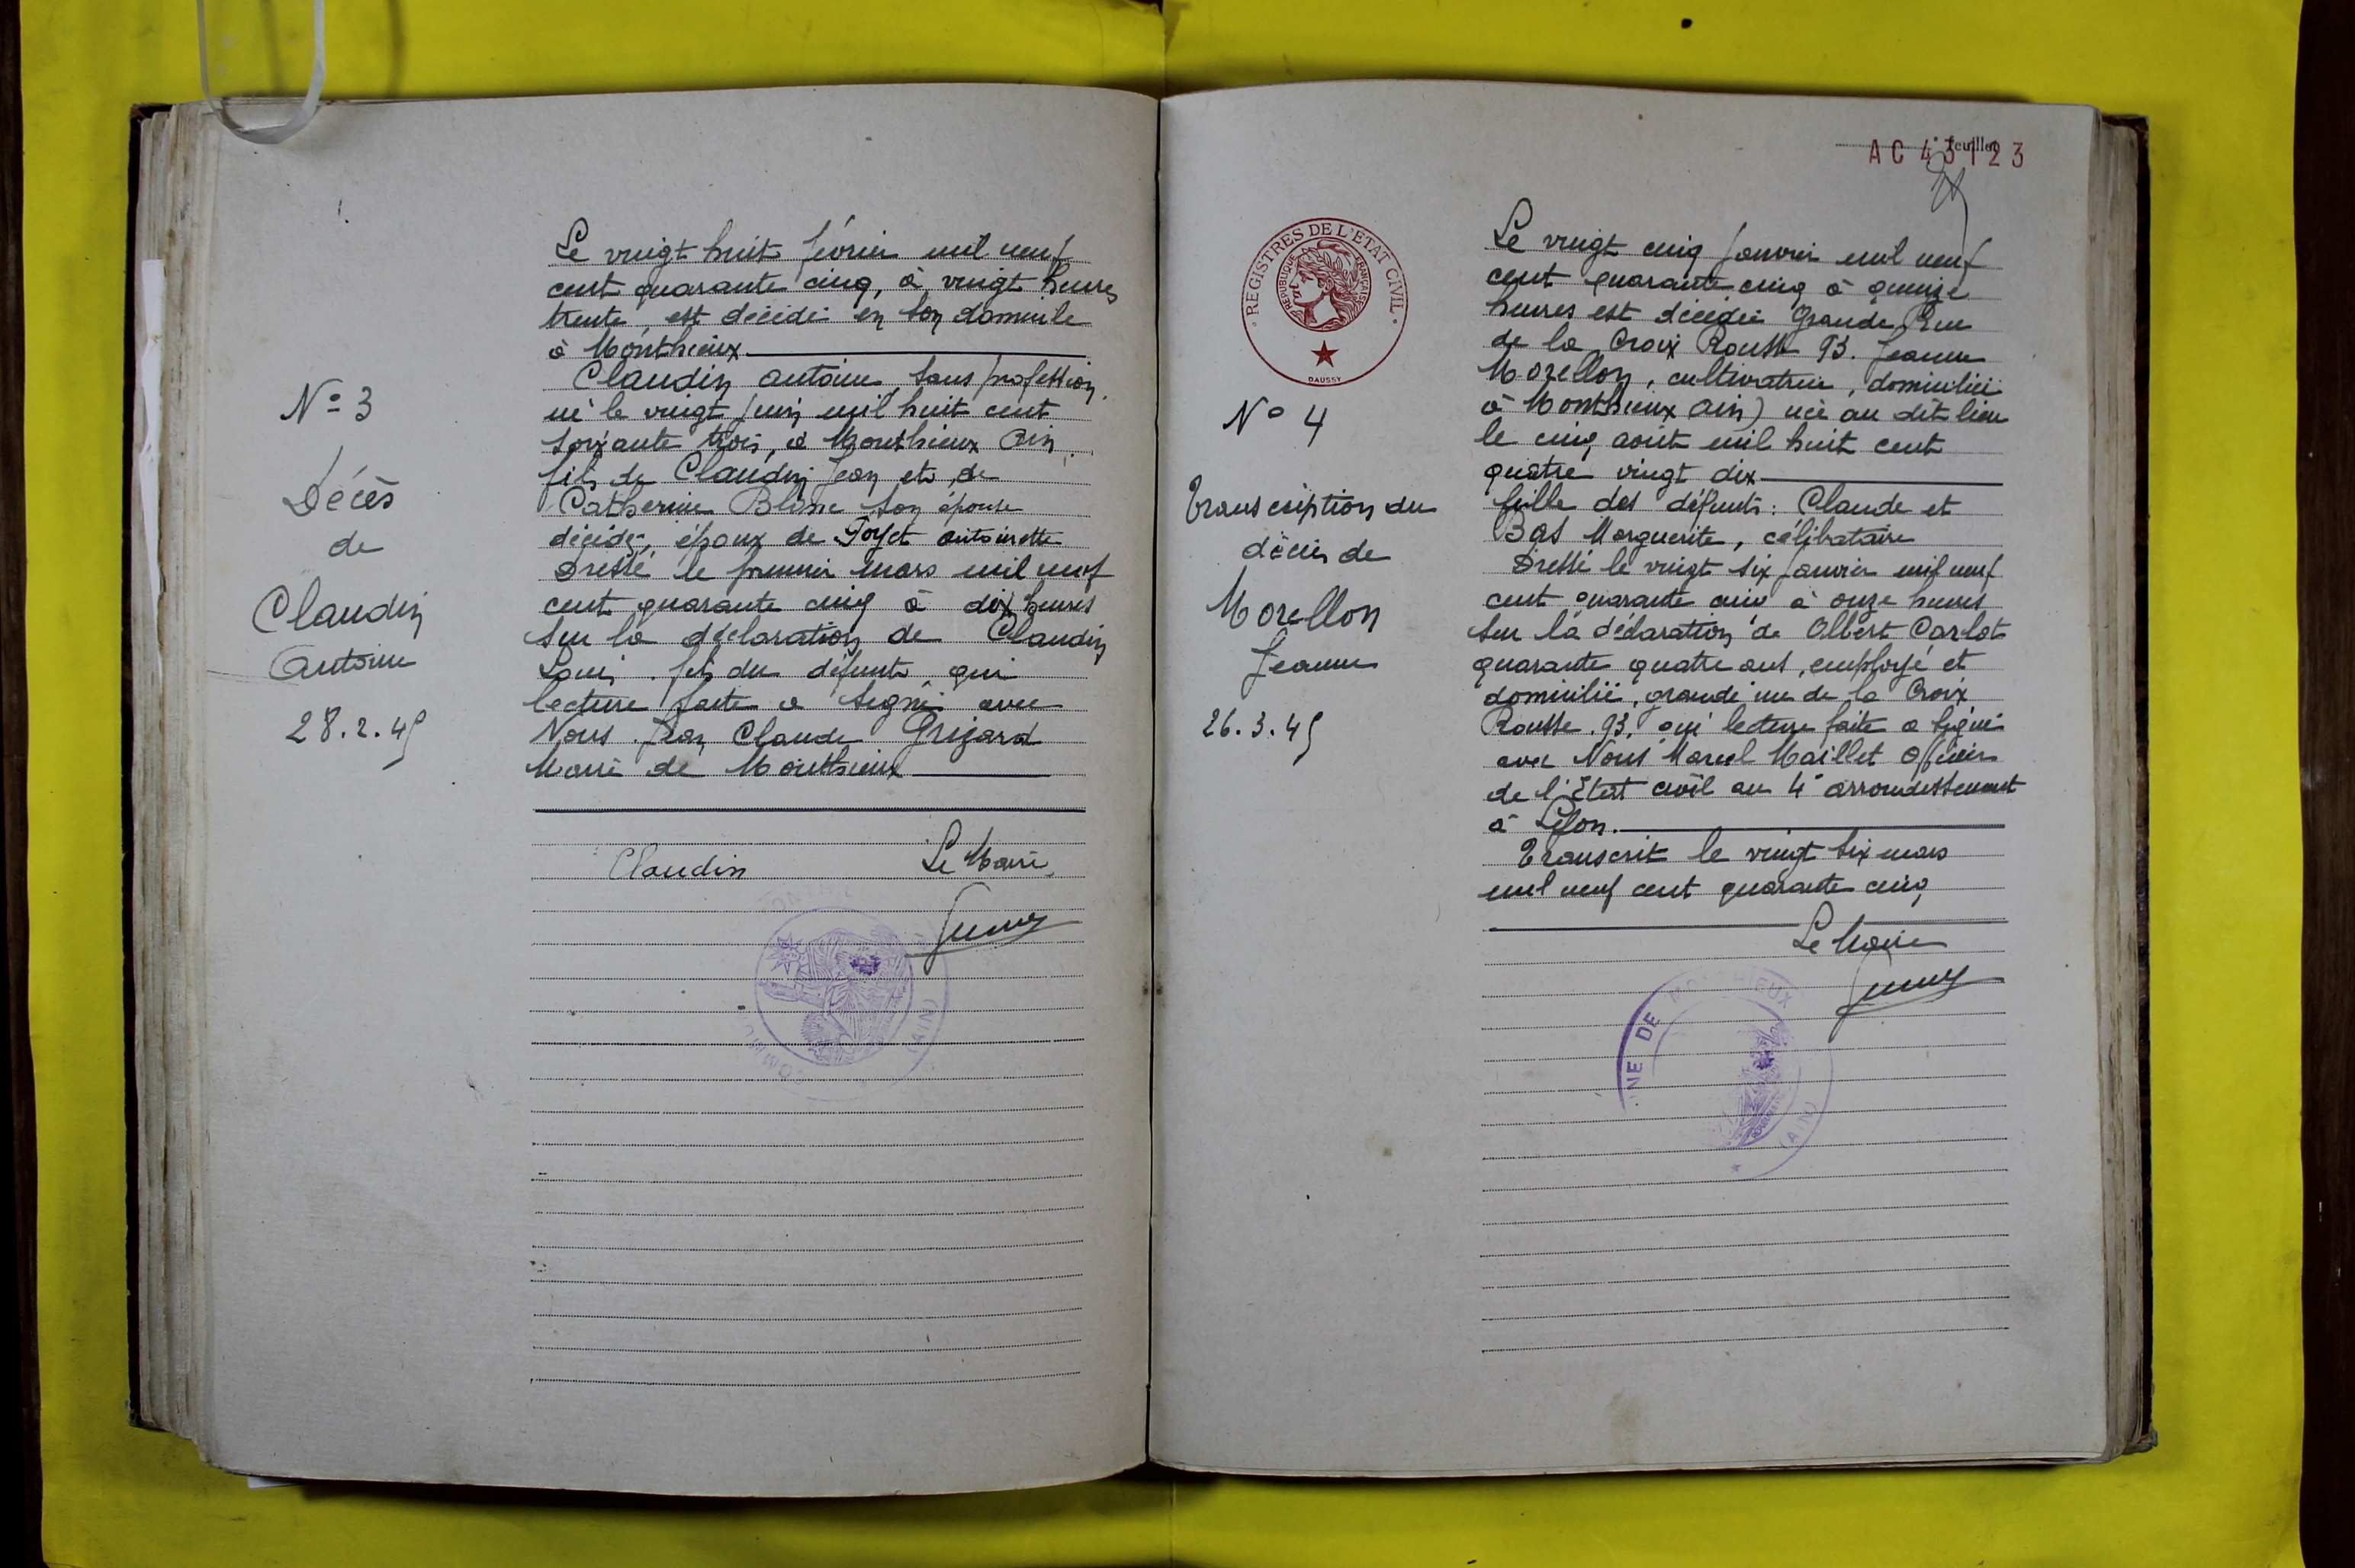 N° 3
Décès
de
Claudin
Antoine
28.2.45
Le vingt huit février mil neuf
cent quarante cinq, à vingt heures
trente, est décédé en son domicile
à Monthieux
Claudin antoine, sans profession,
né le vingt juin mil huit cent
soixante trois, à Monthieux Ain,
fils de Claudin Jean et de
Catherine Blanc son épouse
décédés, époux de Poyet antoinette
Dressé le premier mars mil neuf
cent quarante cinq à dix heures
sur la déclaration de Claudin
Louis. fils du défunt, qui
lecture faite a signé avec
Nous Jean Claude Grizard
Maire de Monthieux
Claudin
Le Maire,
COMMUNE
(AIN)
feuillet
AC 43123
REGISTRES DE L'ÉTAT CIVIL
RÉPUBLIQUE FRANÇAISE
DAUSSY
N° 4
Transcription du
décès de
Morellon
Jeanne
26.3.45
Le vingt cinq Janvier mil neuf
cent quarante cinq à quinze
heures est décédée Grande Rue
de la Croix Rousse 93. Jeanne
Morellon, cultivatrice, domiciliée
à Monthieux Ain) née au dit lieu
le cinq août mil huit cent
quatre vingt dix
fille des défunts: Claude et
Bas Marguerite, célibataire
Dressé le vingt six Janvier mil neuf
cent quarante cinq à onze heures
sur la déclaration de Albert Carlot
quarante quatre ans, employé et
domicilié, grande rue de la Croix
Rousse. 93, qui lecture faite a signé
avec Nous Marcel Maillet Officier
de l'Etat civil au 4° arrondissement
à Lyon.
Transcrit le vingt six mars
mil neuf cent quarante cinq
Le Maire
NE DE M IEUX
(AIN)